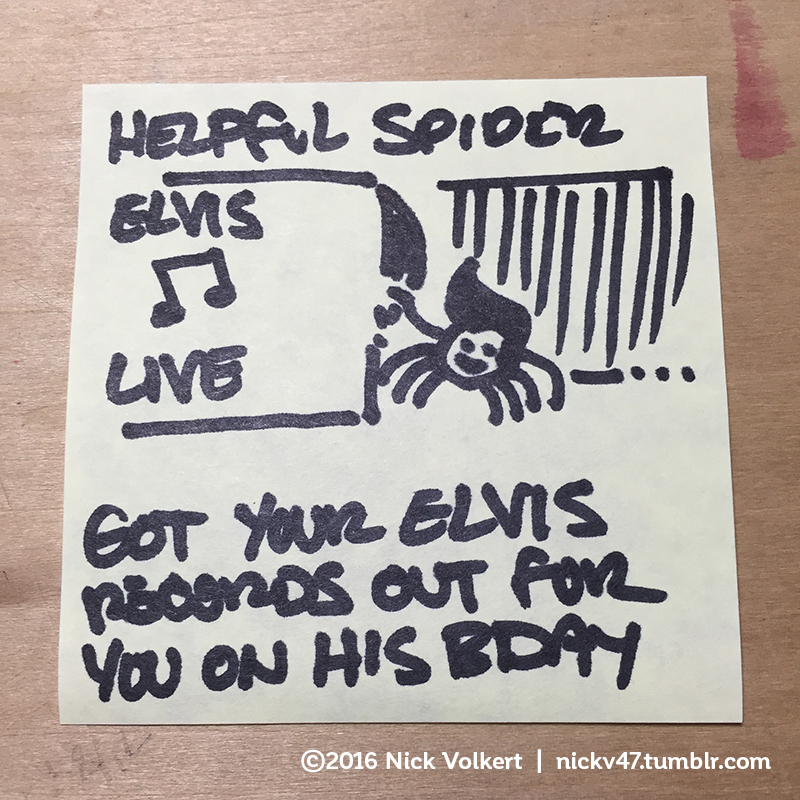 HELPFUL SPIDER
ELVIS
LIVE
GOT YOUR ELVIS
RECORDS OUT FOR
YOU ON HIS BDAY
©2016 Nick Volkert | nickv47.tumblr.com